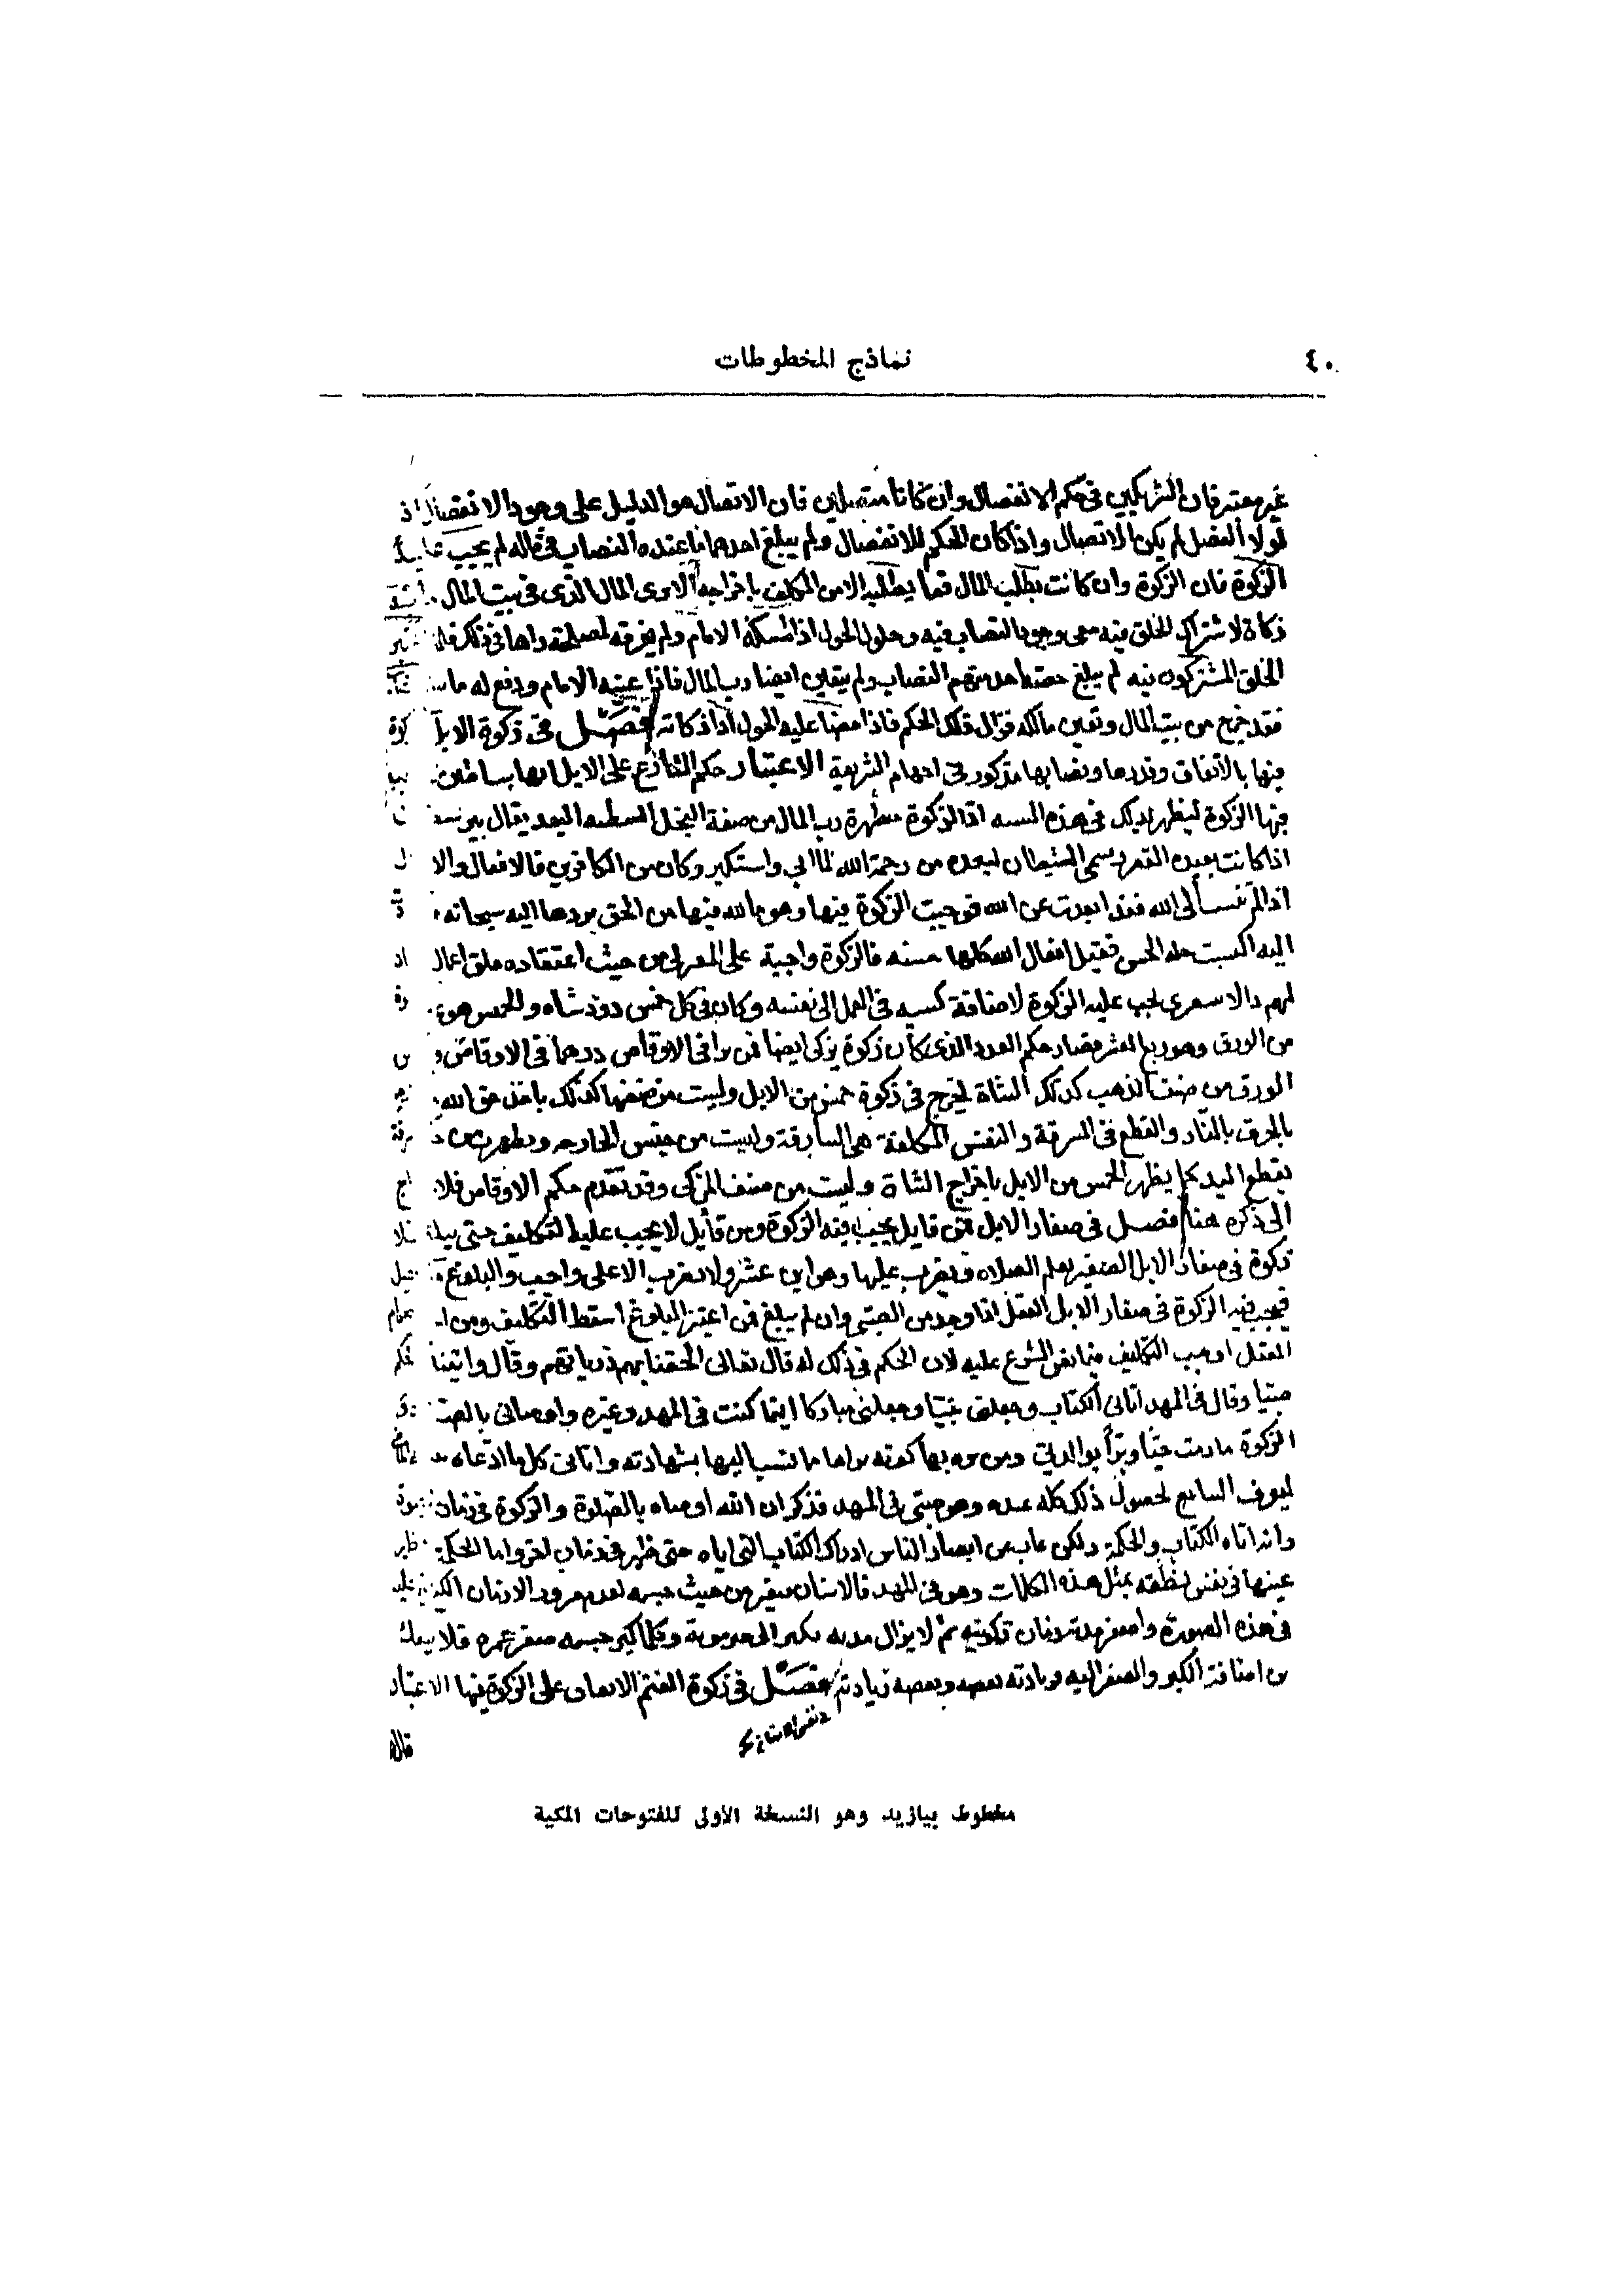 ٤٠
نماذج المخطوطات
غير معتبر فان الشريكين في حكم الانفصال وان كانا متصلين فان الاتصال هو الدليل على وجود الانفصال اذ
لولا الفصل لم يكن الاتصال واذا كان الحكم للانفصال ولم يبلغ احدهما ما عنده النصاب في ماله لم يجب عليه
الزكوة فان الزكوة وان كانت تطلب المال فما يطلب الا من المكلف باخراجه الا ترى المال الذي في بيت المال
زكاة لاشتراك الخلق فيه مع وجود النصاب فيه وحلول الحول اذا امسكه الامام ولم يفرقه لمصلحة راها في ذلك فان
الخلق المشتركون فيه لم يبلغ حصة احد منهم النصاب ولم يتعين ايضا رب المال فاذا عينه الامام ودفع له ما
فقد خرج من بيت المال وتعين مالكه فزال ذلك الحكم فاذا مضا عليه الحول ادا زكاته فصل في زكوة الابل
فيها بالاتفاق وقدرها ونصابها مذكور في احكام الشريعة الاعتبار حكم الشارع على الابل انها شياطين
فيها الزكوة ليظهر بذلك في هذه النسبه اذ الزكوة مطهرة رب المال من صفة البخل الشيطنه البعد يقال بير
اذا كانت بعيده القعر وسمي الشيطان لبعده من رحمة الله لما ابي واستكبر وكان من الكافرين فالافعال والا
اذا لم تنسب الى الله فقد ابعدت عن الله فوجبت الزكوة فيها وهو ما لله فيها من الحق بردها اليه سبحانه
اليه اكتسبت حلة الحسن فقيل افعال الله كلها حسنه فالزكوة واجبة على المعتزلي من حيث اعتقاده خلق اعمال
لهم والاشعري تجب عليه الزكوة لاضافة كسبه في العمل الى نفسه وكان في كل خمس ذود شاه والخمس هو
من الورق وهو ربع العشر فصار حكم العدد الذي كان زكوة يزكى ايضا فمن برا في الاوقاص
الورق من صنف الذهب كذلك الشاة تخرج في زكوة خمس من الابل وليست من صنفها كذلك ياخذ حق الله
بالحرق بالنار والقطع في السرقة والنفس المكلفة هي السارقة وليست من جنس الجارحه وتطهرت من
بقطع اليد كما يظهر الخمس من الابل باخراج الشاة وليست من صنف المزكى وقد تقدم حكم الاوقاص فلا
الى ذكره هنا فصل في صغار الابل فمن قايل يجب فيه الزكوة ومن قايل لا يجب عليه التكليف حتى يبلغ
زكوة في صغار الابل الصغير يعلم الصلاه ويضرب عليها وهو ابن عشر ولا يضرب الا على واجب والبلوغ
فيجب فيه الزكوة في صغار الابل العقل اذا وجد من الصبي وان لم يبلغ فمن اعتبر البلوغ اسقط التكليف ومن
العقل اوجب التكليف فيما نص الشرع عليه لان الحكم في ذلك له قال تعالى الحقنا بهم ذرياتهم وقال واتيناه
صبيا وقال في المهد اتاني الكتاب وجعلني نبيا وجعلني مباركا اينما كنت في المهد وغيره واوصاني بالصلوة
الزكوة مادمت حيا وبرا بوالدتي ومن بره بها كونه براها مما نسب اليها بشهادته واتاني كل ما ادعاه
ليعرف السامع لحصول ذلك كله عنده وهو صبي في المهد فذكر ان الله اوصاه بالصلوة والزكوة في زمان
وانه اتاه الكتاب والحكمة ولكن غاب عن ابصار الناس ادراك الكتاب الذي اتاه حتى ظهر في زمان اخر واما الحكمة
عينها في نفس نطقه بمثل هذه الكلمات وهو في المهد فالانسان صغير من حيث جسمه لعدم مرور الازمان الكثيرة عليه
في هذه الصورة واصغر مدته زمان تكوينه ثم لا يزال مدته تكبر الى حين موته فكلما كبر جسمه صغر عمره فلا ينفك
من اضافة الكبر والصغر اليه فزيادته نقصه ونقصه زيادته فصل في زكوة الغنم الاتفاق على الزكوة فيها الاعتبار
قال
مخطوط بيازيد وهو النسخة الأولى للفتوحات المكية